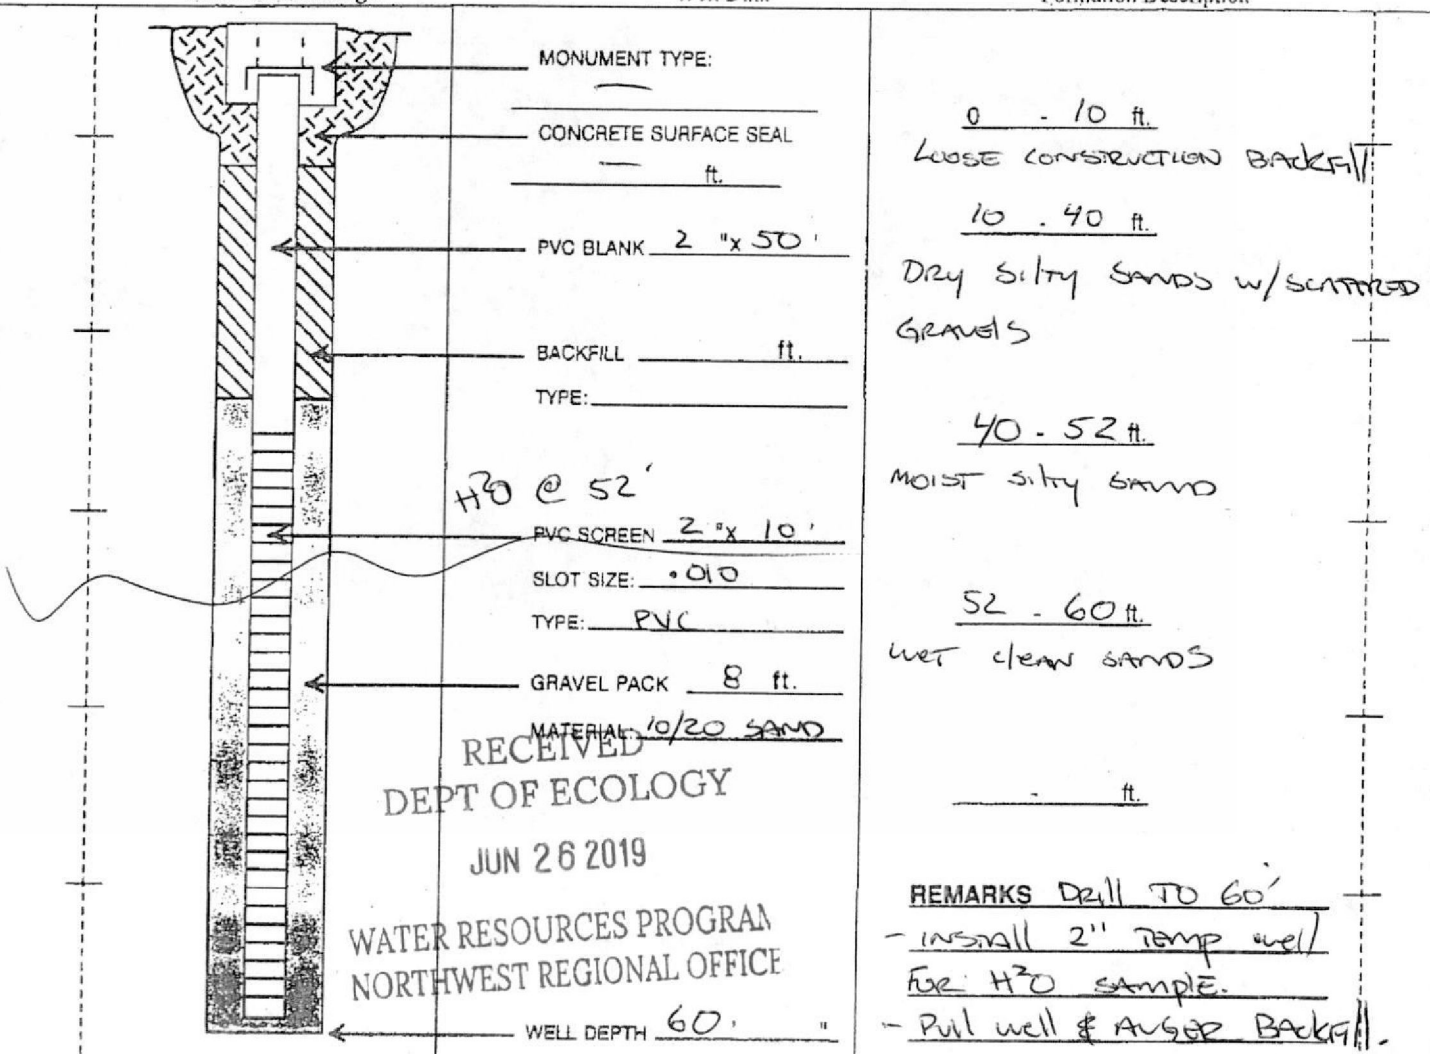 MONUMENT TYPE:
—
CONCRETE SURFACE SEAL
— ft.
PVC BLANK 2 "x 50 '
BACKFILL ft.
TYPE:
H2O @ 52'
PVC SCREEN 2 "x 10 '
SLOT SIZE: .010
TYPE: PVC
GRAVEL PACK 8 ft.
MATERIAL: 10/20 SAND
RECEIVED
DEPT OF ECOLOGY
JUN 26 2019
WATER RESOURCES PROGRAM
NORTHWEST REGIONAL OFFICE
WELL DEPTH 60' "
0 - 10 ft.
LOOSE CONSTRUCTION BACKFill
10 - 40 ft.
DRy Silty SANDS w/SCATTERED
GRAVElS
40 - 52 ft.
MOIST Silty SAND
52 - 60 ft.
WET clEAN SANDS
- ft.
REMARKS DRill TO 60'
- INSTAll 2" TEMP well
FOR H2O SAMPlE.
- Pull well & AUGER BACKFill.